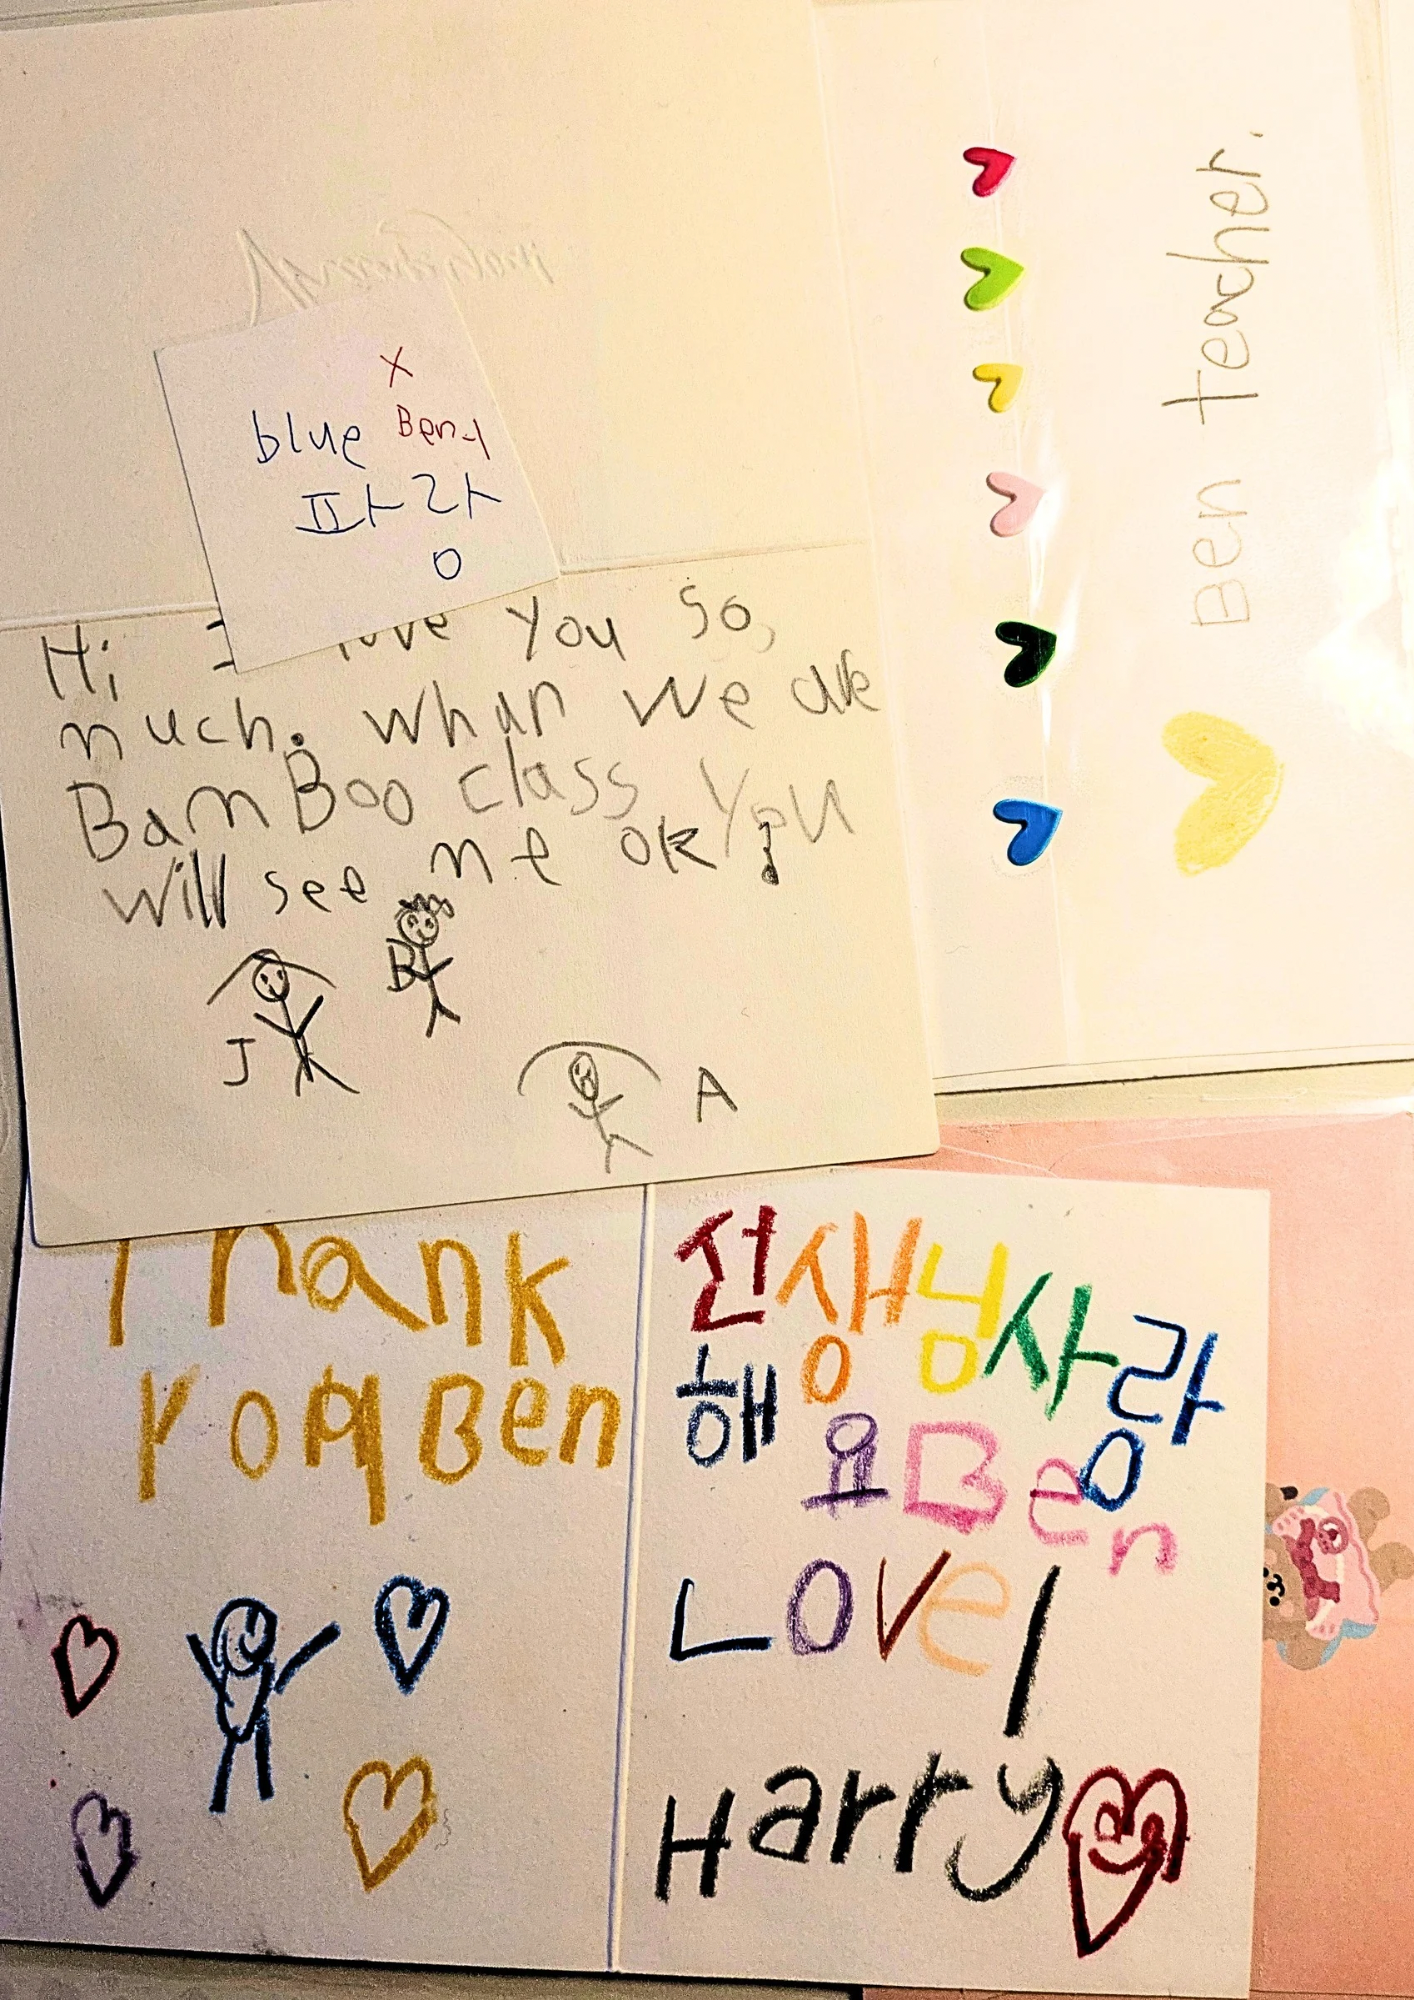 X
blue Ben
파라
o
Hi I love you so
much. whan we are
BamBoo class you
will see me ok
J
B
A
Ben teacher.
Thank
You Ben
선생님 사랑
해요 Ben
Love
Harry